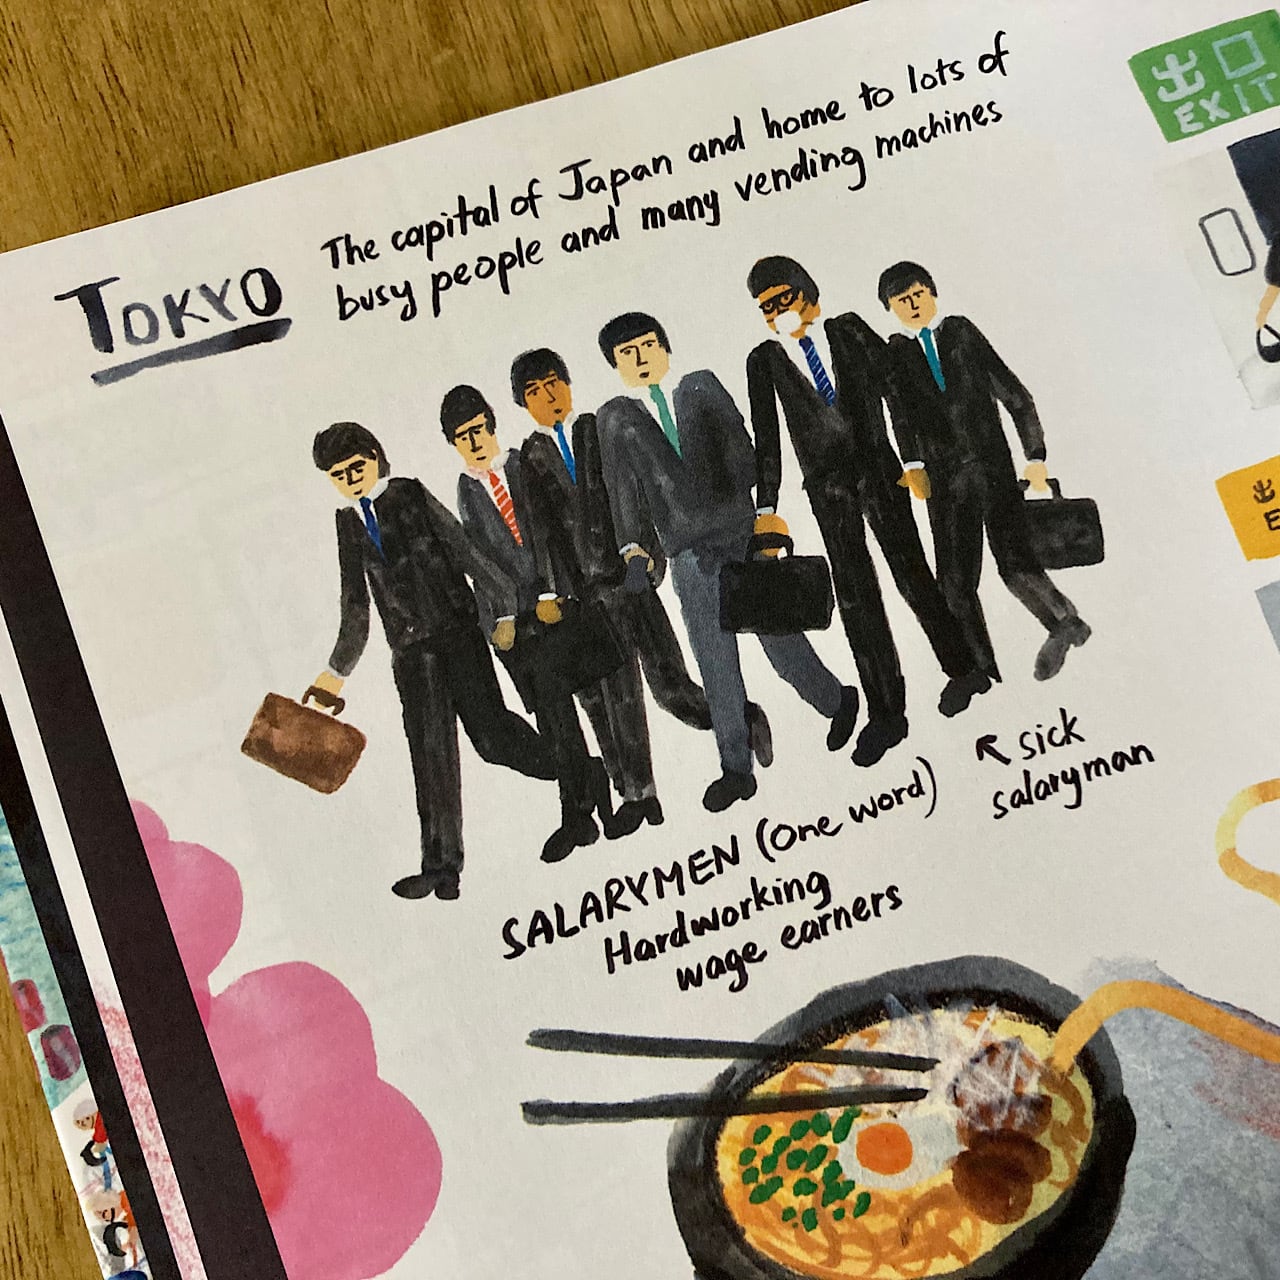 TOKYO
The capital of Japan and home to lots of
busy people and many vending machines
出口
EXIT
出
E
sick
salaryman
SALARYMEN (One word)
Hardworking
wage earners